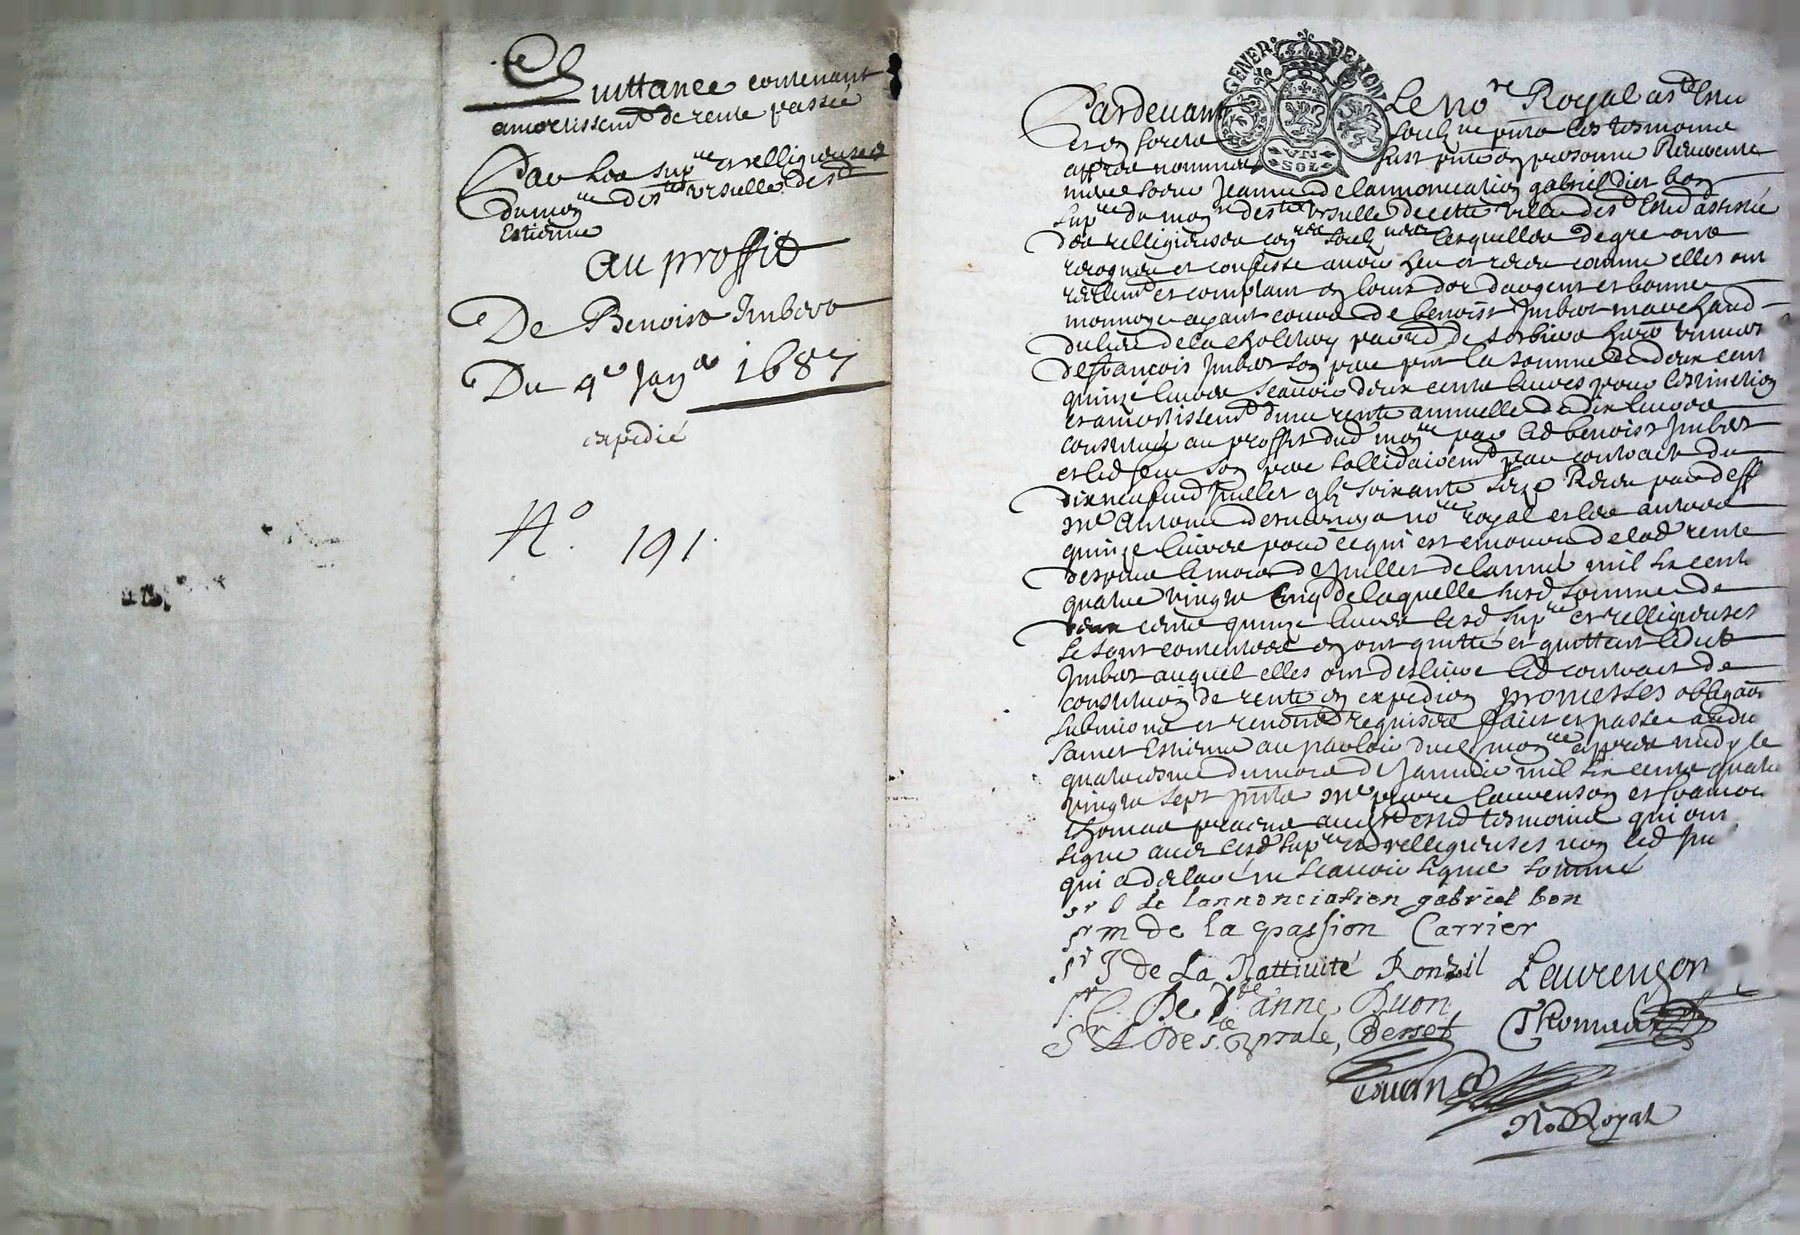 Quittance contenant
amortissemt de rente passée
Par les supre et relligieuses
du monre des tes ursulles de st
Estienne
au proffit
De Benoist Imbert
Du 4e janer 1687
expedié
No. 191.
GENER DE LYON
UN
SOL
Pardevant Le nore Royal a st Estne
et en presence soubzne
affres nommés fust pnte en personne Reverente
mere soeur Jeanne de lannonciation gabriel diet bon
supre du monre des tes ursulles de cette ville de st Estne assistée
des relligieuses soubznées lesquelles de gre ont
recogneu et confessé avoir heu et receu comme elles ont
reellemt et comptant en louis dor dargent et bonne
monnoye ayant cours de benoist Imbert marchand
du lieu de la
de françois Imbert son pere pnt la somme de deux cent
quinze livres scavoir deux cents livres pour lextinction
et amortissemt dune rente annuelle de dix livres
constituée au proffit dud monre par led benoist Imbert
et led feu son pere sollidairemt par contract du
dixneufvie Juillet soixante seize Receu par deff
me Antoine nore royal et les autres
quinze livres pour ce qui est de lad rente
despuis le mois de Juillet de lannée mil six cent
quatre vingts cinq de laquelle susd somme de
deux cents quinze livres lesd supre et relligieuses
se sont contentées en ont quitté et quittent ledit
Imbert auquel elles ont deslivré led contract de
constitution de rente en expedion promesses obligaons
submions et renonons requises faict et passé audit
sainct Estienne au parloir dud monre appres midy le
quatriesme du mois de Janvier mil six cents quatre
vingts sept pnts me pierre laurenson et
thomas tesmoins qui ont
signé avec lesd supre et relligieuses non led Im
qui a declaré ne scavoir signer sommé
sr J de lannonciation gabriel bon
sr m de la passion Carrier
sr J de La Nattivité Ronzil Laurenson
sr C. De ste anne Buon
Sr De s.te Ursule, Besset Thomas
No Royal